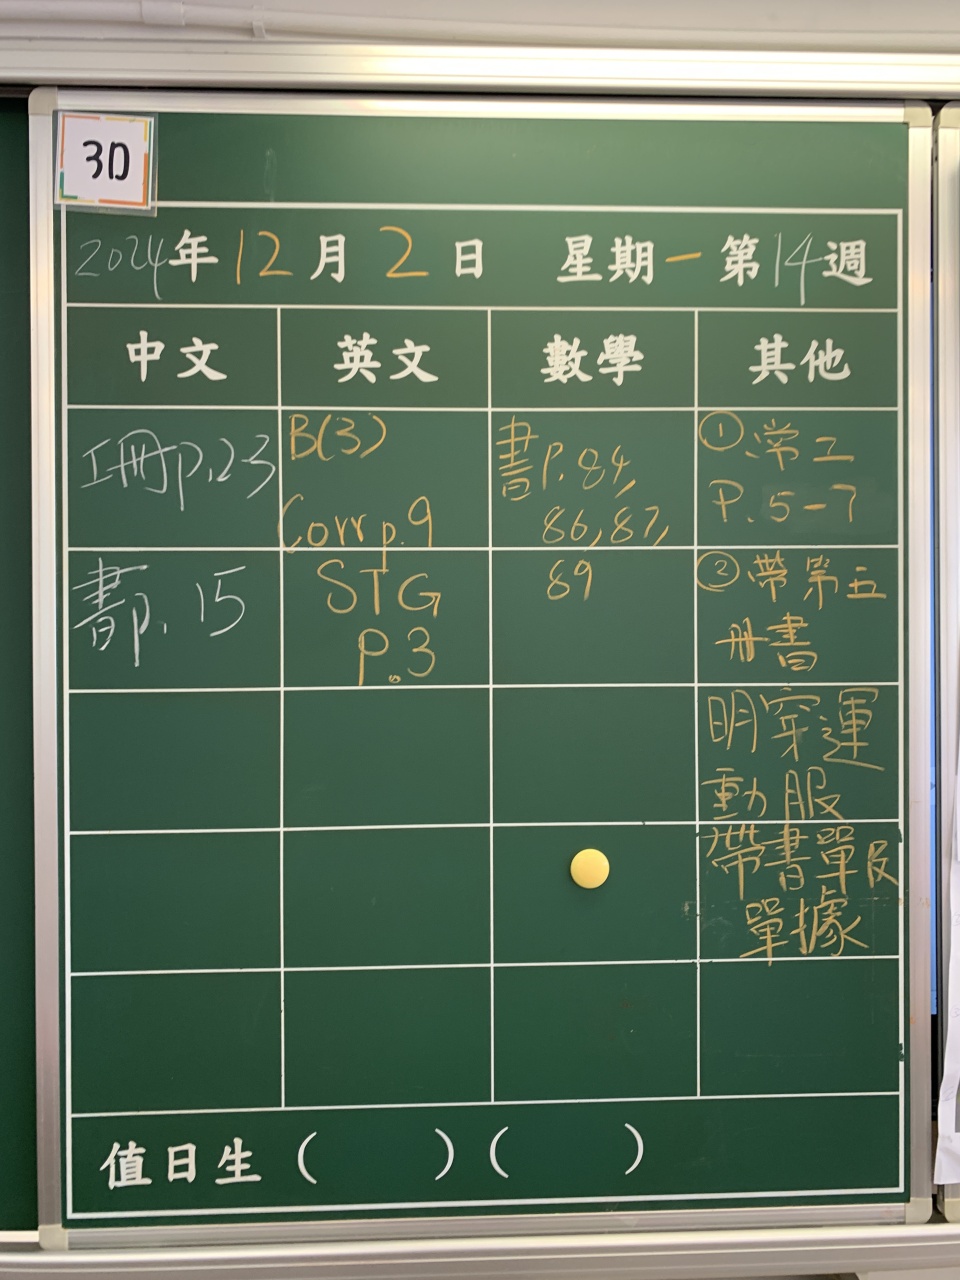 3D
2024年12月2日 星期一 第14週
中文 英文 數學 其他
工冊p.23
書p.15
B(3)
Corr p.9
STG
P.3
書P.84,
86,87,
89
①常工
P.5-7
②帶第五
冊書
明穿運
動服
帶書單及
單據
值日生( )( )